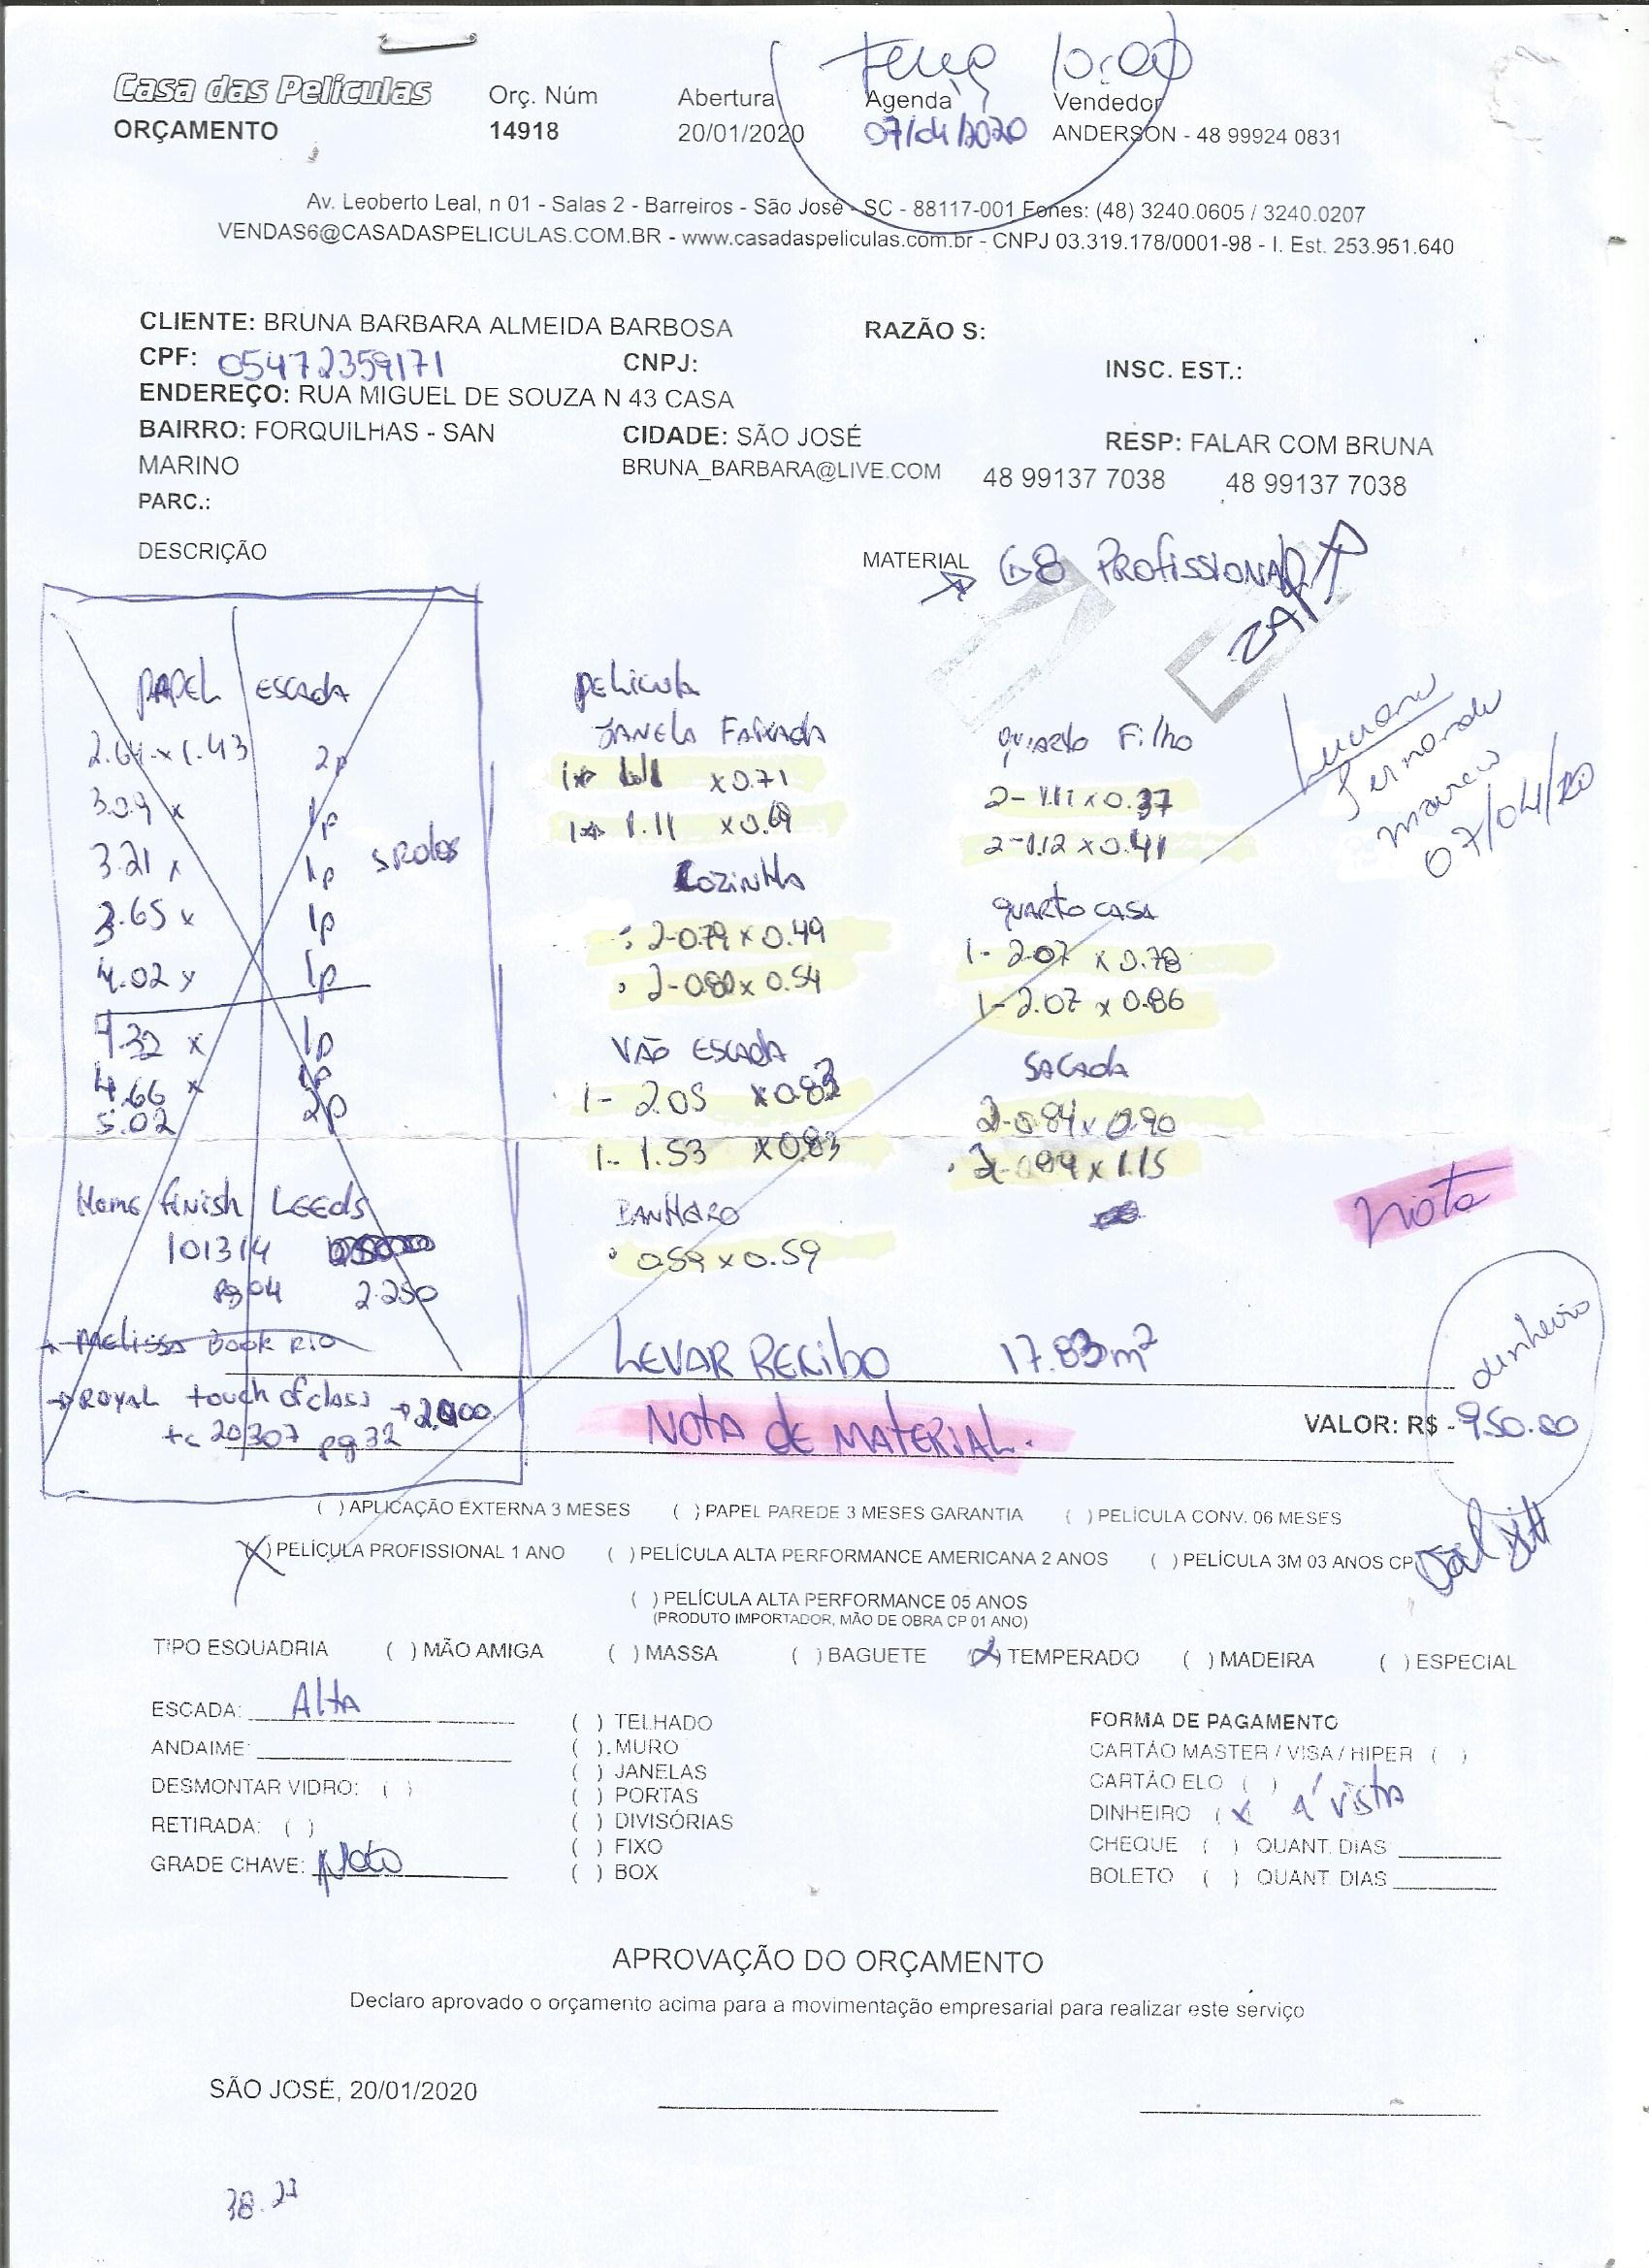 terça 10:00
Casa das Películas
Orç. Núm
Abertura
Agenda
Vendedor
ORÇAMENTO
14918
20/01/2020
07/04/2020
ANDERSON - 48 99924 0831
Av. Leoberto Leal, n 01 - Salas 2 - Barreiros - São José - SC - 88117-001 Fones: (48) 3240.0605 / 3240.0207
VENDAS6@CASADASPELICULAS.COM.BR - www.casadaspeliculas.com.br - CNPJ 03.319.178/0001-98 - I. Est. 253.951.640
CLIENTE: BRUNA BARBARA ALMEIDA BARBOSA
RAZÃO S:
CPF: 05472359171
CNPJ:
INSC. EST.:
ENDEREÇO: RUA MIGUEL DE SOUZA N 43 CASA
BAIRRO: FORQUILHAS - SAN MARINO
CIDADE: SÃO JOSÉ
RESP: FALAR COM BRUNA
BRUNA_BARBARA@LIVE.COM
48 99137 7038
48 99137 7038
PARC.:
DESCRIÇÃO
MATERIAL
G8 PROFISSIONAL
ZAP
PAPEL ESCADA
2.64 x 1.43 2p
3.09 x 1p
3.21 x 1p
5 Rolos
3.65 x 1p
4.02 x 1p
4.32 x 1p
4.66 x 1p
5.02 2p
Home finish LEEds
101314
pg 04 2.250
Melissa Book Rio
ROYAL touch of class
tc 20307 pg 32
PELICULA
JANELA FAIXADA
1 1.11 x 0.71
1 1.11 x 0.69
COZINHA
2-0.79 x 0.49
2-0.80 x 0.54
VÃO ESCADA
1- 2.05 x 0.83
1- 1.53 x 0.83
BANHEIRO
0.59 x 0.59
QUARTO Filho
2- 1.11 x 0.37
2-1.12 x 0.41
QUARTO CASA
1- 2.07 x 0.78
1- 2.07 x 0.86
SACADA
2-0.84 x 0.90
2-0.94 x 1.15
Luciano
Fernando
marcio
07/04/20
Nota
LEVAR RECIBO 17.83m²
NOTA DE MATERIAL.
dinheiro
VALOR: R$ - 950.00
( ) APLICAÇÃO EXTERNA 3 MESES
( ) PAPEL PAREDE 3 MESES GARANTIA
( ) PELÍCULA CONV. 06 MESES
(X) PELÍCULA PROFISSIONAL 1 ANO
( ) PELÍCULA ALTA PERFORMANCE AMERICANA 2 ANOS
( ) PELÍCULA 3M 03 ANOS CP
( ) PELÍCULA ALTA PERFORMANCE 05 ANOS
(PRODUTO IMPORTADOR, MÃO DE OBRA CP 01 ANO)
TIPO ESQUADRIA
( ) MÃO AMIGA
( ) MASSA
( ) BAGUETE
(X) TEMPERADO
( ) MADEIRA
( ) ESPECIAL
ESCADA: Alta
ANDAIME:
DESMONTAR VIDRO: ( )
RETIRADA: ( )
GRADE CHAVE:
( ) TELHADO
( ). MURO
( ) JANELAS
( ) PORTAS
( ) DIVISÓRIAS
( ) FIXO
( ) BOX
FORMA DE PAGAMENTO
CARTÃO MASTER / VISA / HIPER ( )
CARTÃO ELO ( )
DINHEIRO ( x Á VISTA
CHEQUE ( ) QUANT. DIAS
BOLETO ( ) QUANT. DIAS
APROVAÇÃO DO ORÇAMENTO
Declaro aprovado o orçamento acima para a movimentação empresarial para realizar este serviço
SÃO JOSÉ, 20/01/2020